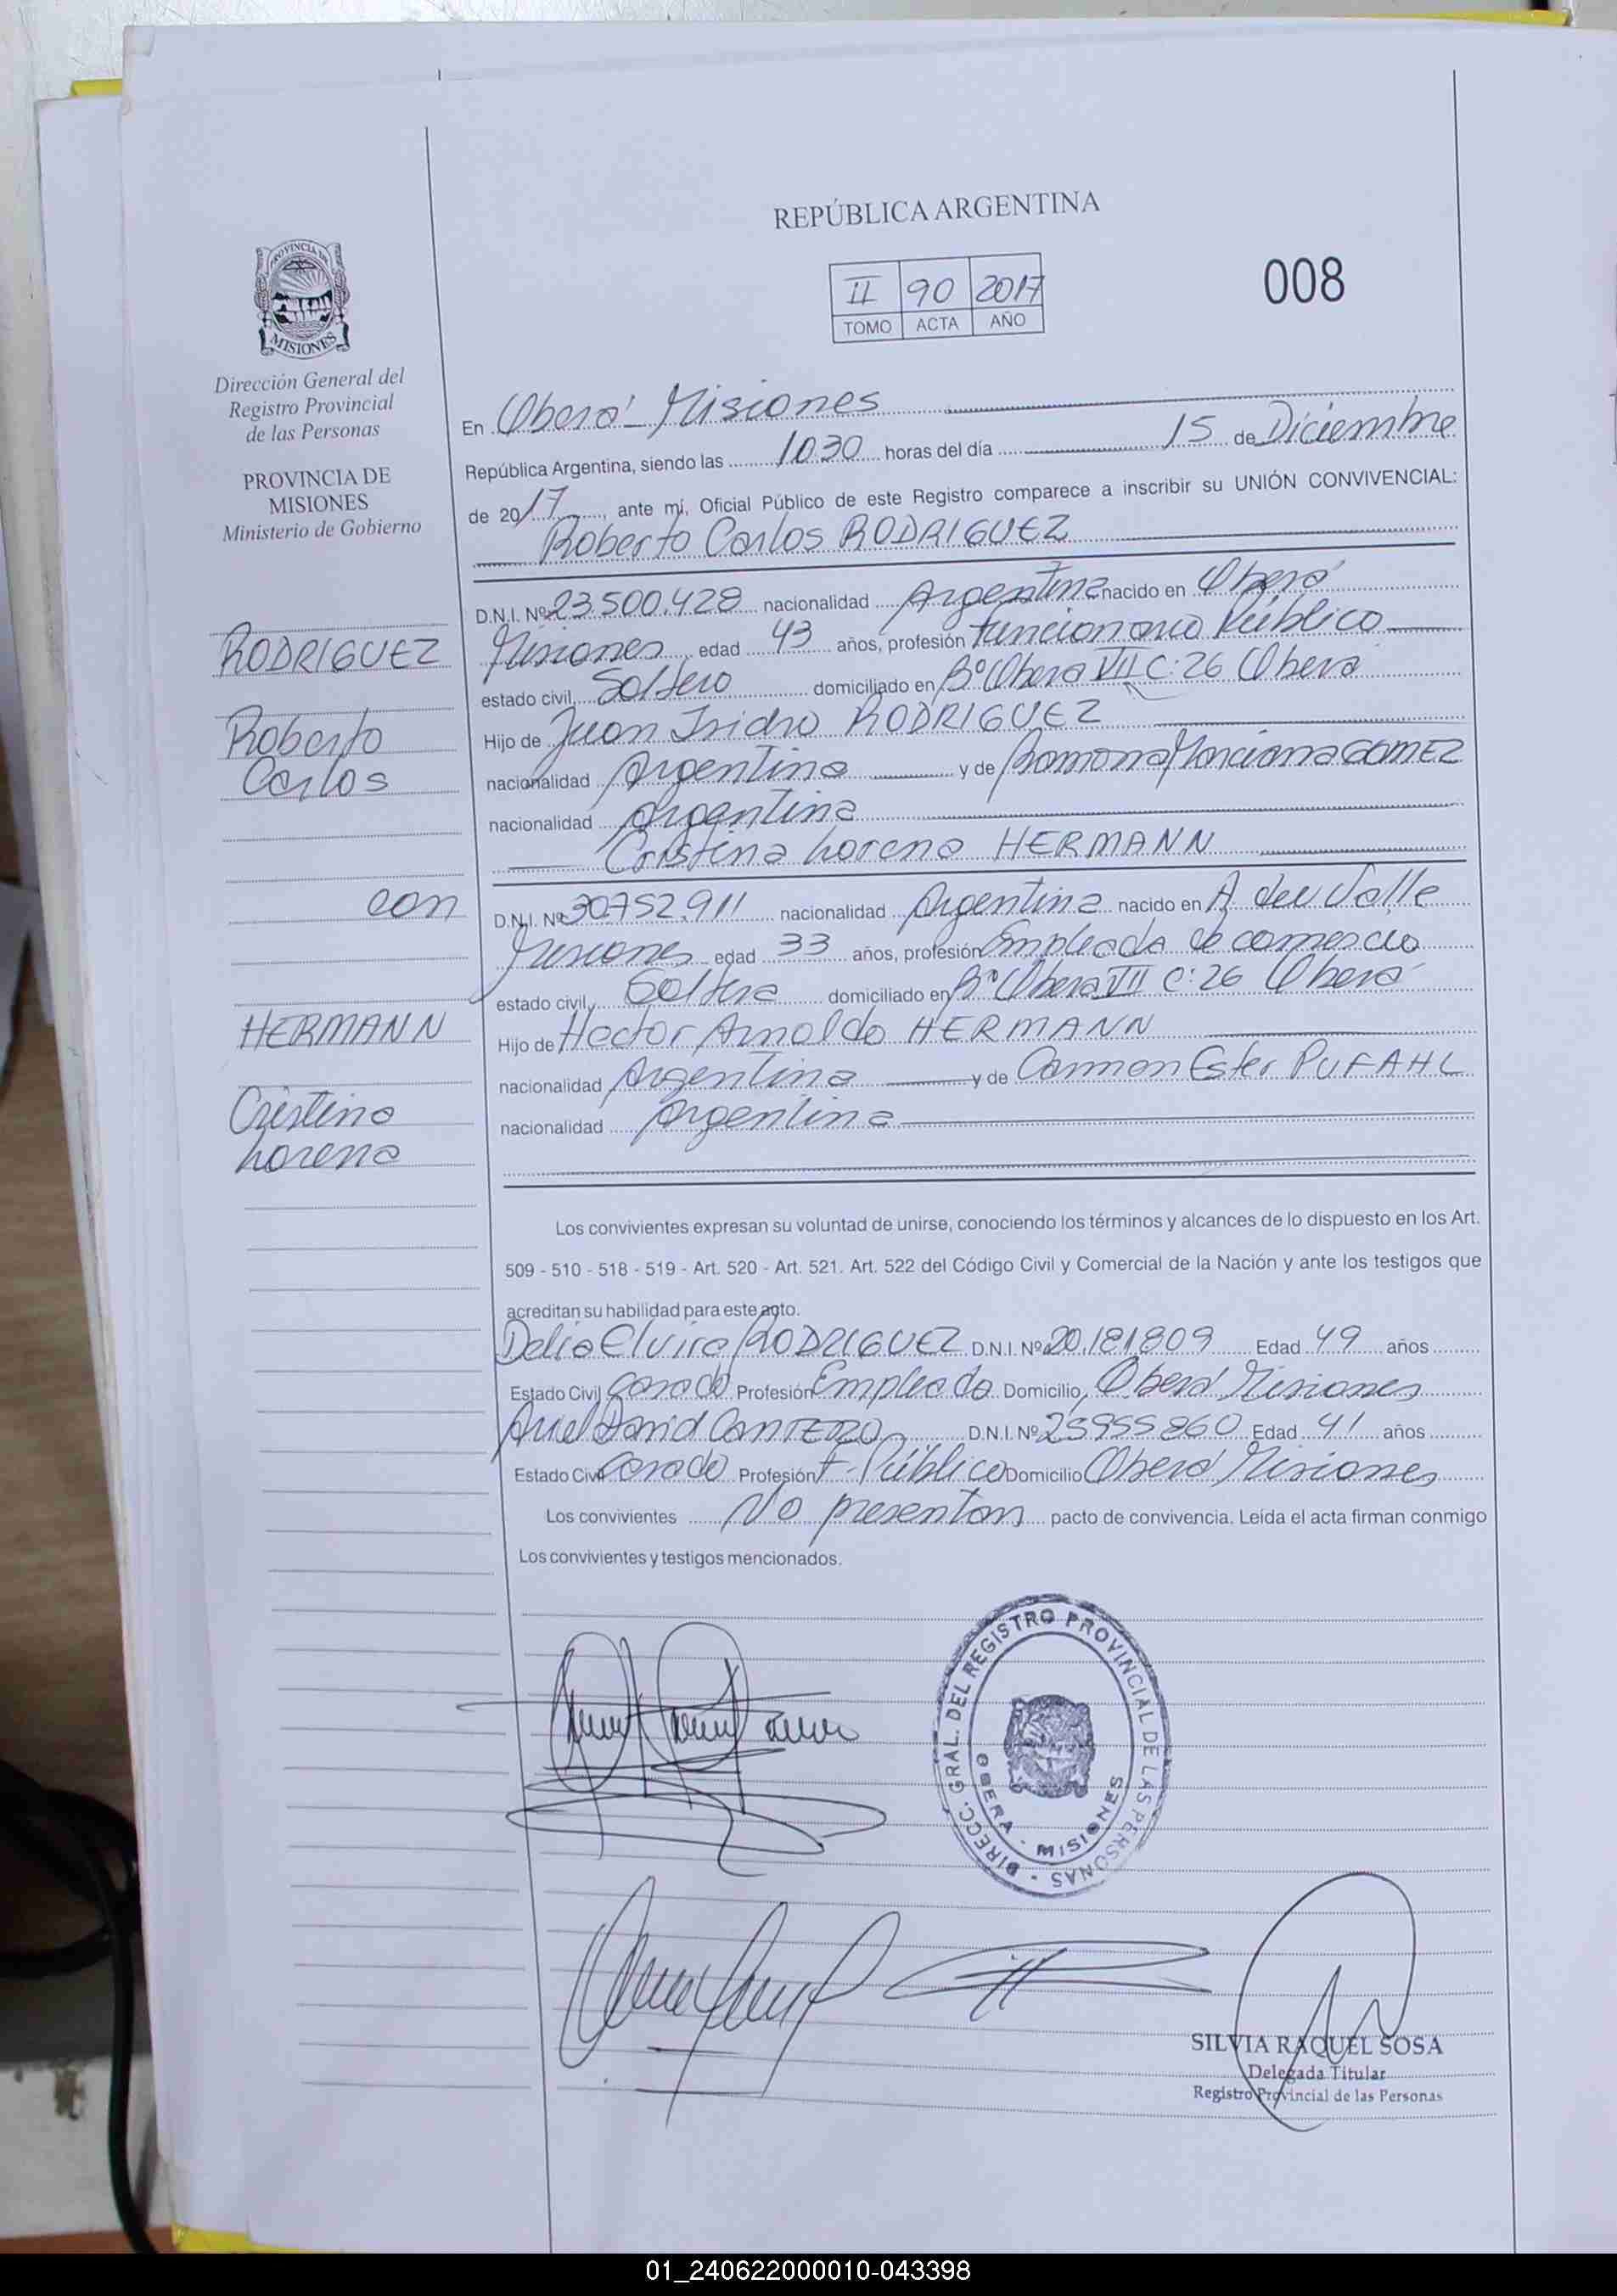 REPÚBLICA ARGENTINA
II 90 2017
TOMO ACTA AÑO
008
PROVINCIA DE
MISIONES
Dirección General del
Registro Provincial
de las Personas
PROVINCIA DE
MISIONES
Ministerio de Gobierno
RODRIGUEZ
Roberto
Carlos
con
HERMANN
Cristina
Lorena
En Oberá - Misiones
República Argentina, siendo las 10:30 horas del día 15 de Diciembre
de 2017, ante mí, Oficial Público de este Registro comparece a inscribir su UNIÓN CONVIVENCIAL:
Roberto Carlos RODRIGUEZ
D.N.I. Nº 23.500.428 nacionalidad Argentina nacido en Oberá
Misiones edad 43 años, profesión Funcionario Público
estado civil, Soltero domiciliado en Bº Oberá VII C: 26 Oberá
Hijo de Juan Isidro RODRIGUEZ
nacionalidad Argentina y de Ramona Marciana GOMEZ
nacionalidad Argentina
Cristina Lorena HERMANN
D.N.I. Nº 30.752.911 nacionalidad Argentina nacido en A. del Valle
Misiones edad 33 años, profesión Empleada de comercio
estado civil, Soltera domiciliado en Bº Oberá VII C: 26 Oberá
Hijo de Hector Arnoldo HERMANN
nacionalidad Argentina y de Carmen Ester PUFAHL
nacionalidad Argentina
Los convivientes expresan su voluntad de unirse, conociendo los términos y alcances de lo dispuesto en los Art.
509 - 510 - 518 - 519 - Art. 520 - Art. 521. Art. 522 del Código Civil y Comercial de la Nación y ante los testigos que
acreditan su habilidad para este acto.
Delia Elvira RODRIGUEZ D.N.I. Nº 20.181.809 Edad 49 años
Estado Civil Casada Profesión Empleada Domicilio, Oberá Misiones
Ariel David CANTERO D.N.I. Nº 25955860 Edad 41 años
Estado Civil Casado Profesión F. Público Domicilio Oberá Misiones
Los convivientes No presentan pacto de convivencia. Leída el acta firman conmigo
Los convivientes y testigos mencionados.
DIRECC. GRAL. DEL REGISTRO PROVINCIAL DE LAS PERSONAS
OBERA - MISIONES
SILVIA RAQUEL SOSA
Delegada Titular
Registro Provincial de las Personas
01_240622000010-043398